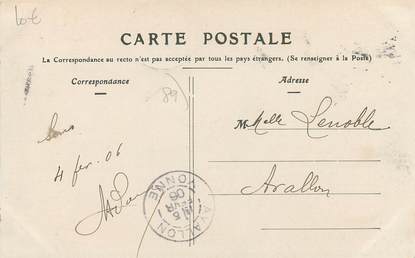 10€
CARTE POSTALE
La Correspondance au recto n'est pas acceptée par tous les pays étrangers. (Se renseigner à la Poste)
Correspondance
Adresse
89
Melle Lenoble
Avallon
4 fev. 06
AVALLON
YONNE